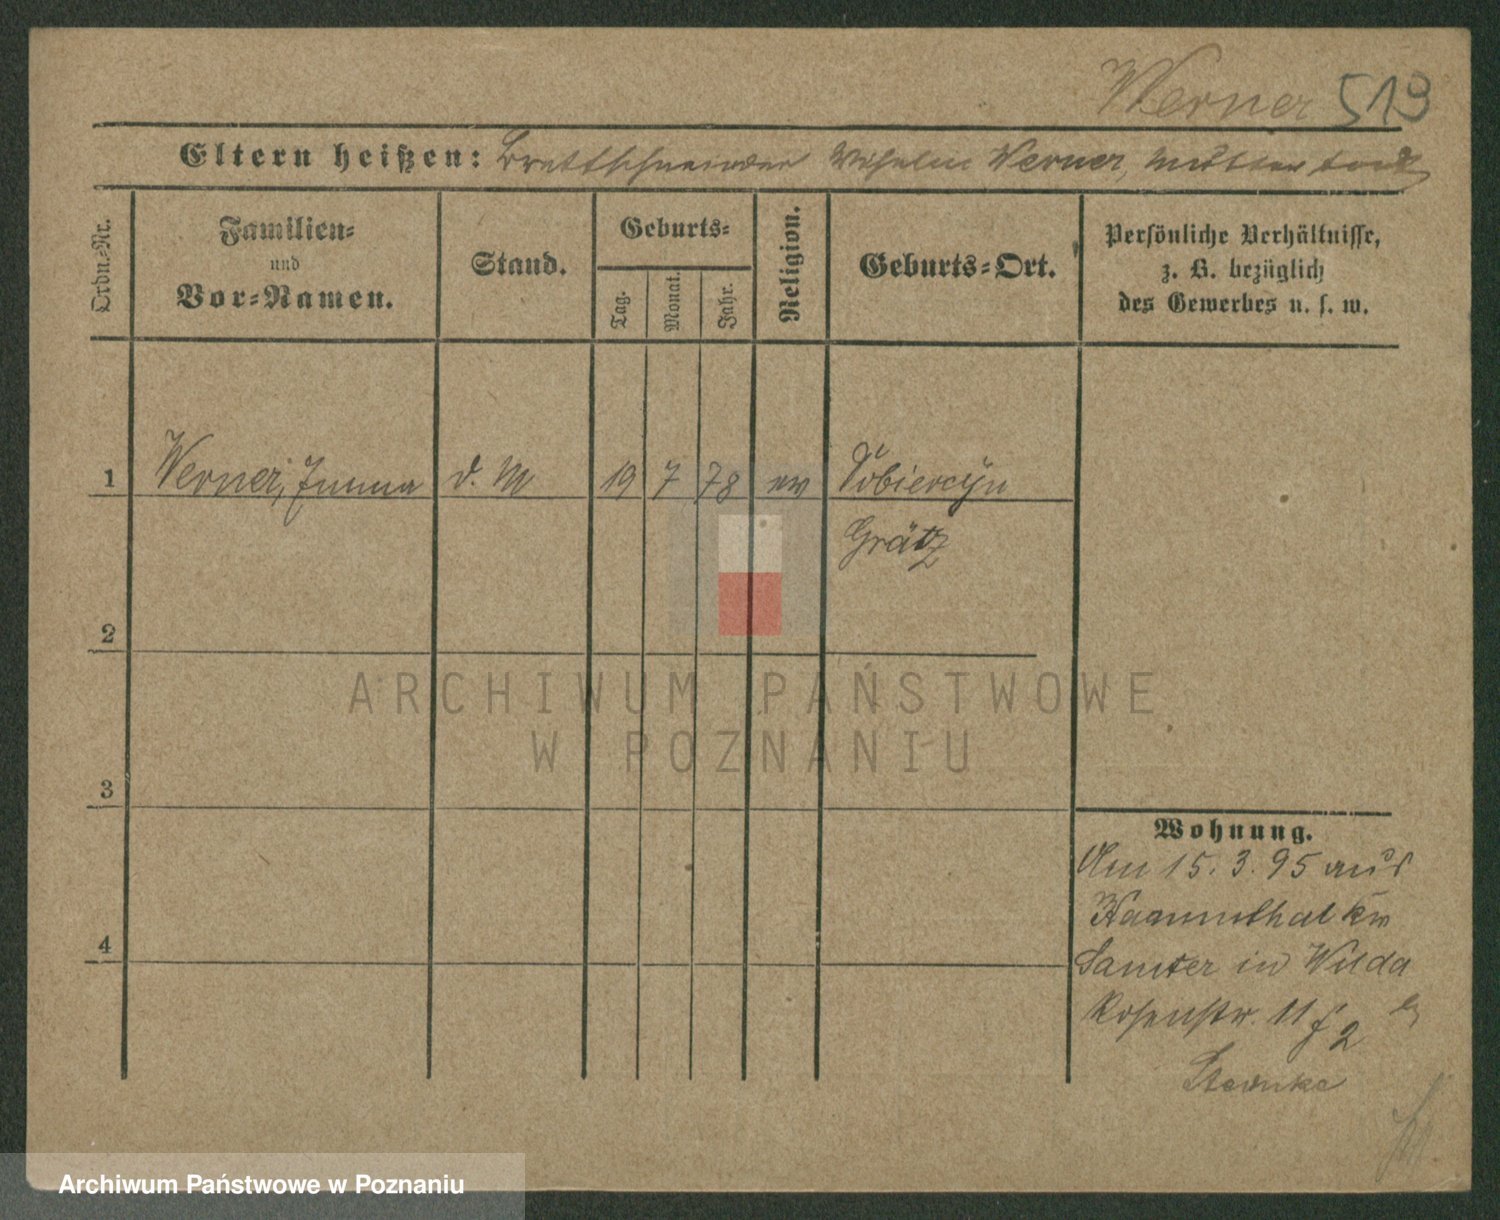 Werner 513
Eltern heißen: Brettschneider Wilhelm Werner, Mutter todt
Ordn.-Nr.
Familien-
und
Vor-Namen.
Stand.
Geburts-
Tag.
Monat.
Jahr.
Religion.
Geburts-Ort.
Persönliche Verhältnisse,
z. B. bezüglich
des Gewerbes u. s. w.
1 Werner, Emma d. M 19 7 78 ev
Grätz
2
3
4
ARCHIWUM PAŃSTWOWE
W POZNANIU
Wohnung.
Am 15.3.95 aus
Samter in Wilda
Rosenstr. 11
Archiwum Państwowe w Poznaniu